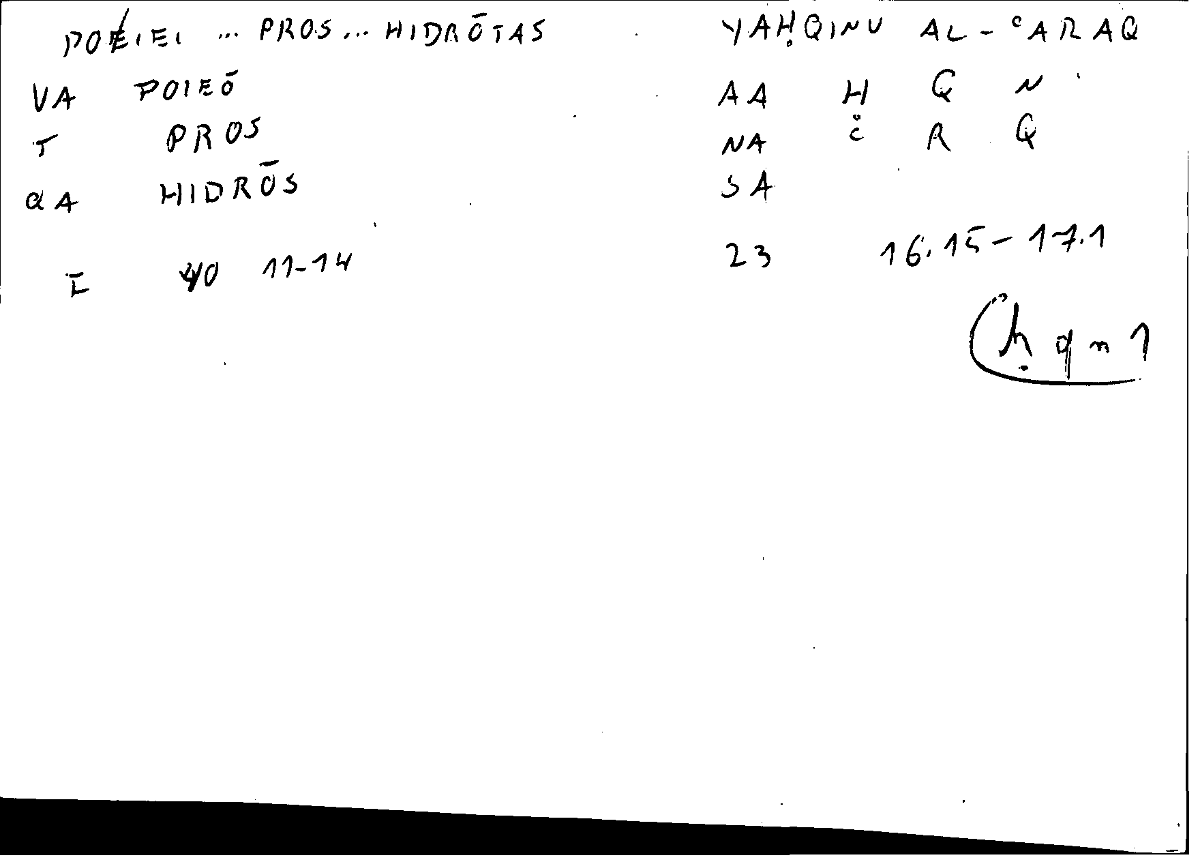 POEIEI ... PROS ... HIDRŌTAS YAḤQINU AL-ʿARAQ
VA POIEŌ AA Ḥ Q N
T PROS NA ʿ R Q
αA HIDRŌS SA
I 40 11-14 23 16.15-17.1
ḥqn1